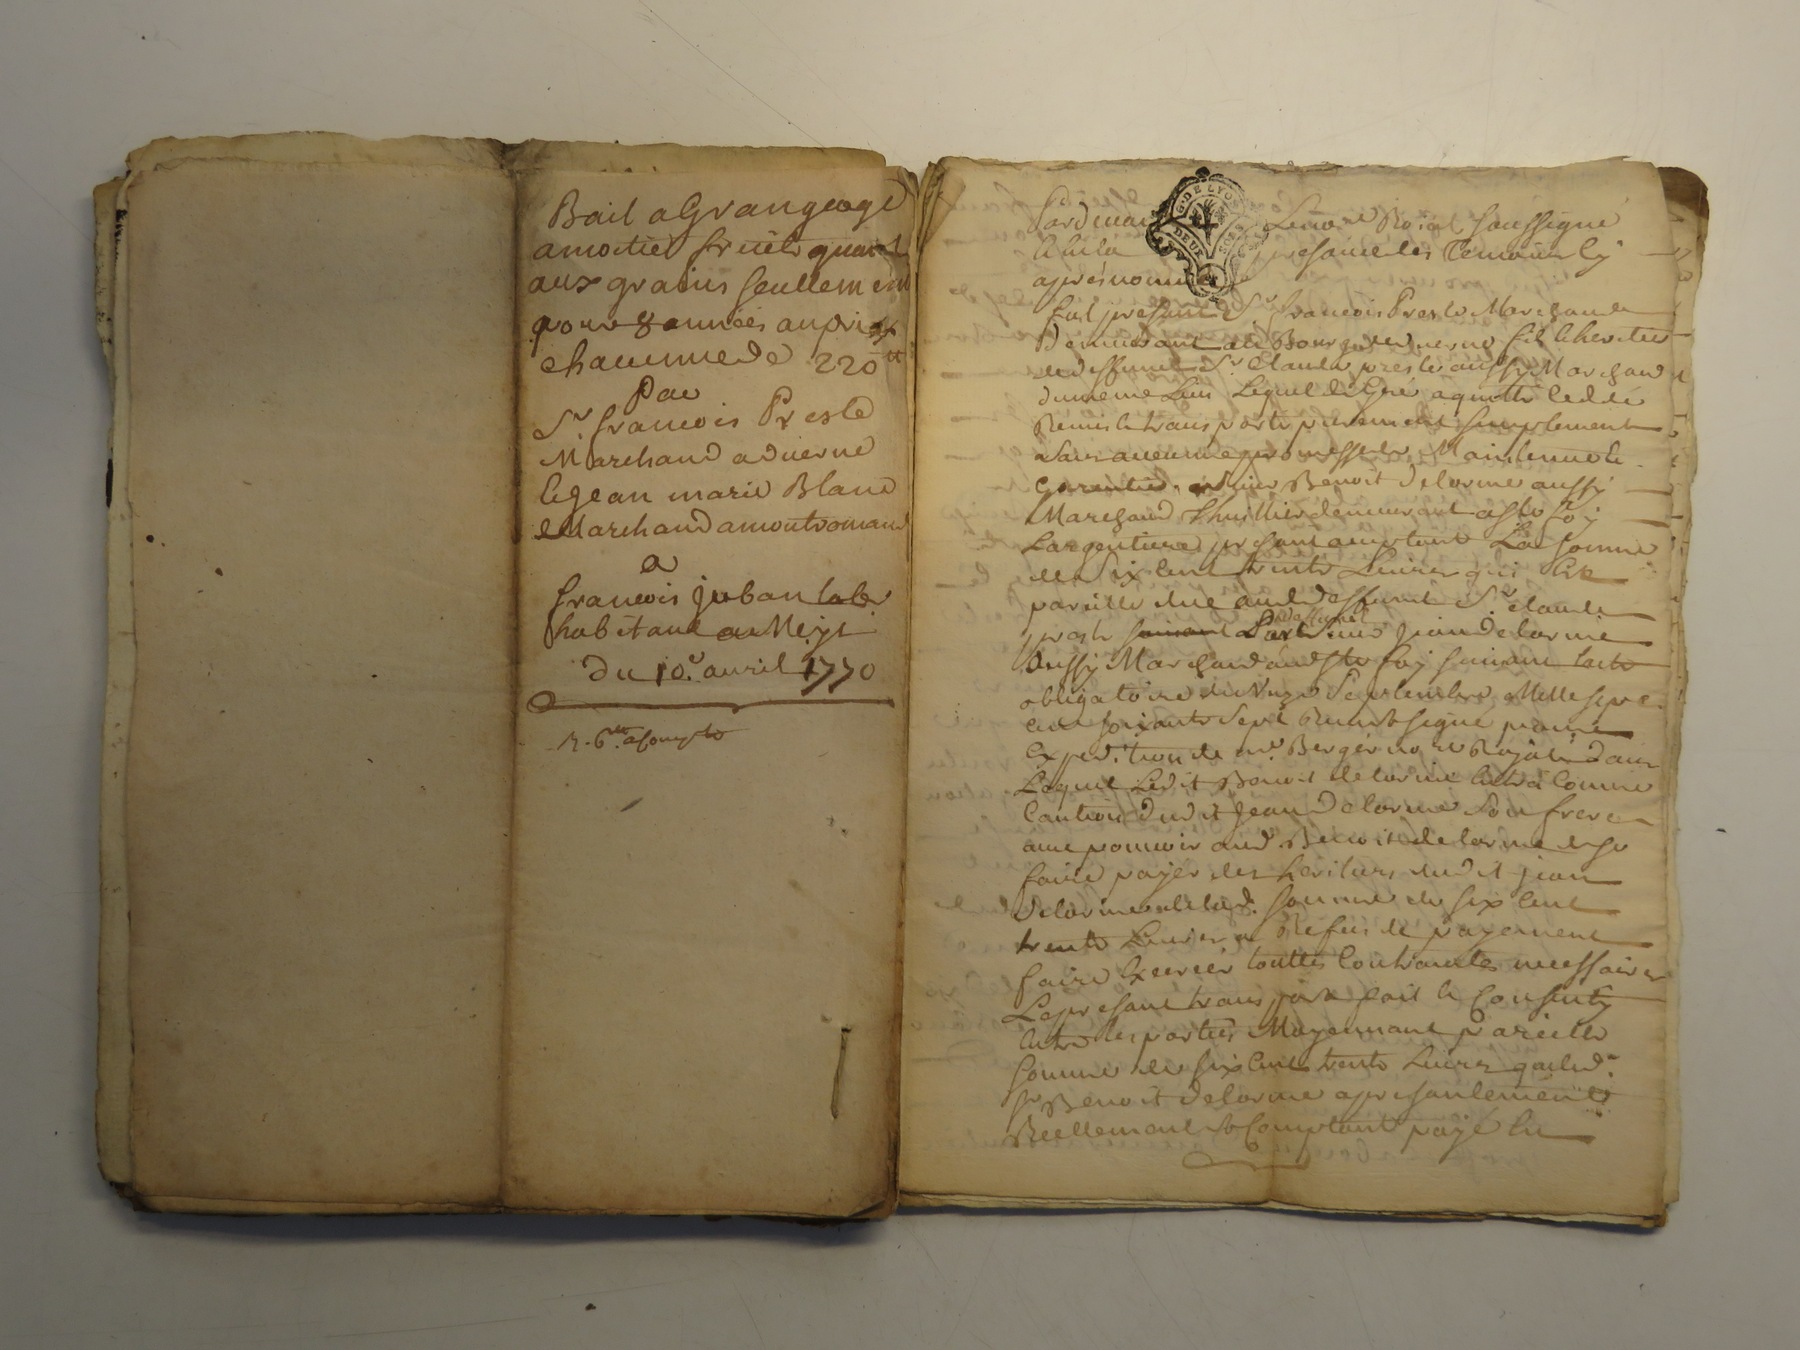 Bail a Grangeage
a moitié fruits quant
aux grains seullement
pour 8 années au prix
chacunne de 220 ₶
Par
Sr. francois Presle
Marchand a duerne
& jean marie Blanc
Marchand a montromand
a
francois juban lab.
habitant a Meys
du 10e. avril 1770
R. 6 ₶ a compte
G. DE LYON
DEUX SOLS
Pardevant Le no.re Roial soussigné
& en la presance des Temoins cy
apres nommés
fut present Sr. francois Presle Marchand
Demeurant au Bourg de duerne fils & heritier
de deffunt Sr. Claude presle aussy Marchand
du meme Lieu Lequel de Gré a quitté cedé
Remis & transporté purement & simplement
sans aucunne promesse de Maintenue &
Garentie Benoit delorme aussy
Marchand huillier demeurant a Ste foy
L'argentiere present acceptant La somme
de six cent trente Livres qui est
pareille due aud. deffunt Sr. Claude
presle Par deffunt jean delorme
aussy Marchand aud. Ste foy suivant lacte
obligatoire du Septembre Mille sept
cent soixante Sept Remise signé
Expedition de me. Berger no.re Royal dans
Lequel Ledit Benoit delorme entra Comme
Caution dudit Jean Delorme son frere
avec pouvoir aud. Benoit delorme de se
faire payer des heritiers dudit jean
delorme de lad. somme de six cent
trente Livres a Refus de payement
faire Exercer touttes Contraintes necessaires
Le present transport fait & Consenty
Entre les parties Moyennant pareille
somme de six cent trente Livres que led.
Sr Benoit delorme a presentement
Reellement & Comptant payé en